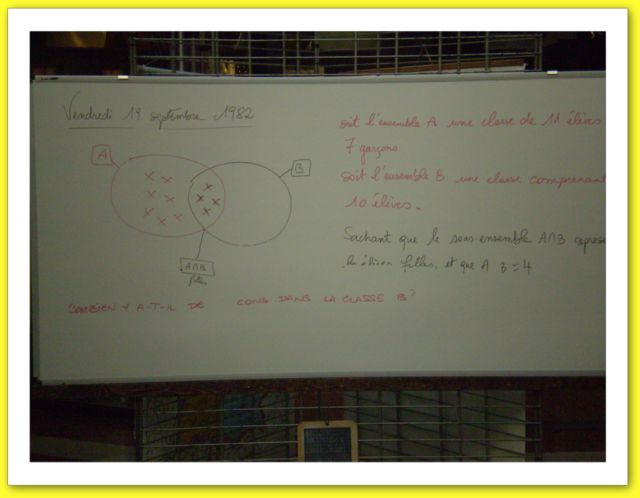 Vendredi 19 septembre 1982
A
B
A∩B
filles
soit l'ensemble A une classe de 11 élèves
7 garçons
soit l'ensemble B une classe comprenant
10 élèves.
Sachant que le sous-ensemble A∩B
filles, et que A B = 4
COMBIEN Y A-T-IL DE CONS DANS LA CLASSE B?